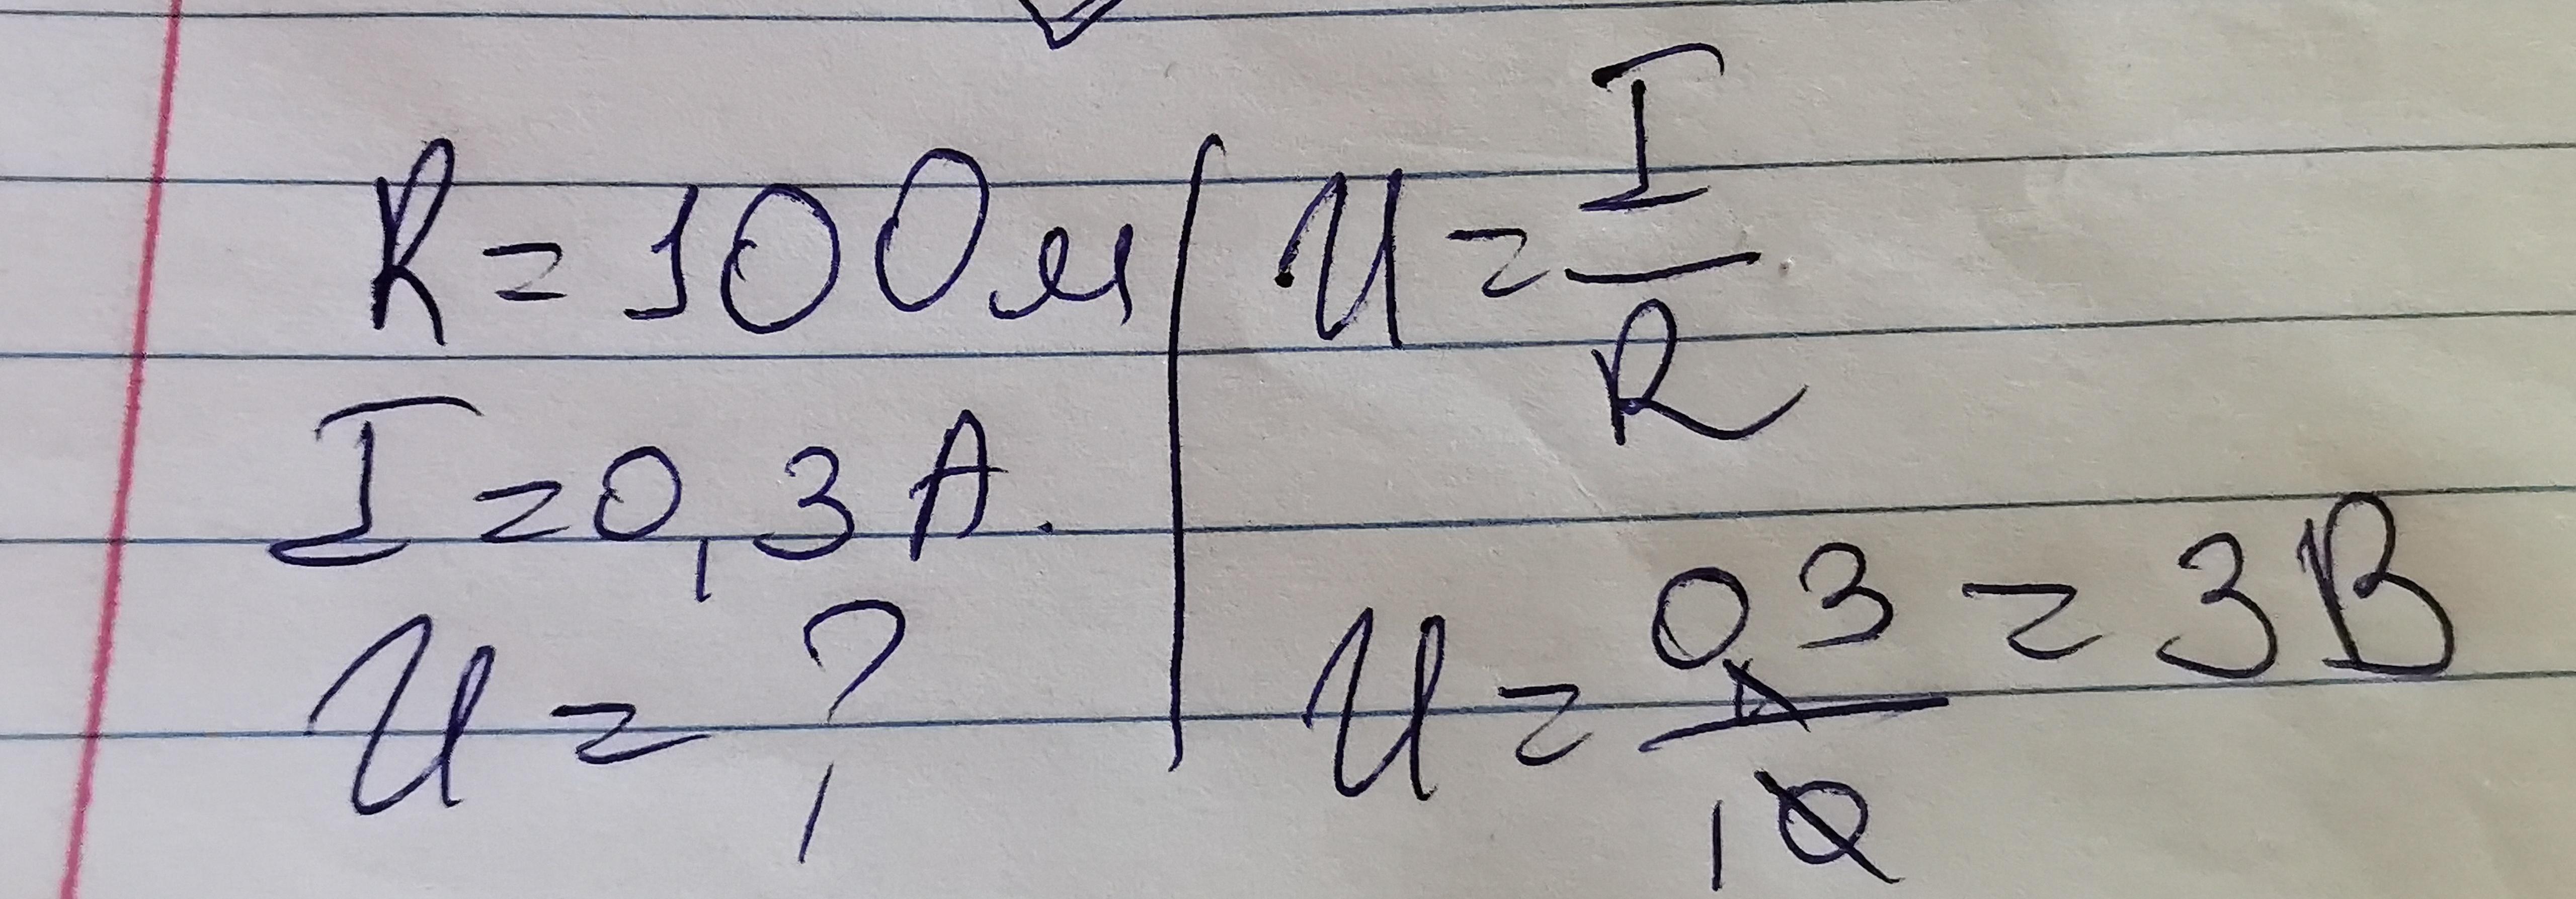 R = 10 Ом
I = 0,3 А.
U = ?
U = I/R
U = 0,3/10 = 3 В